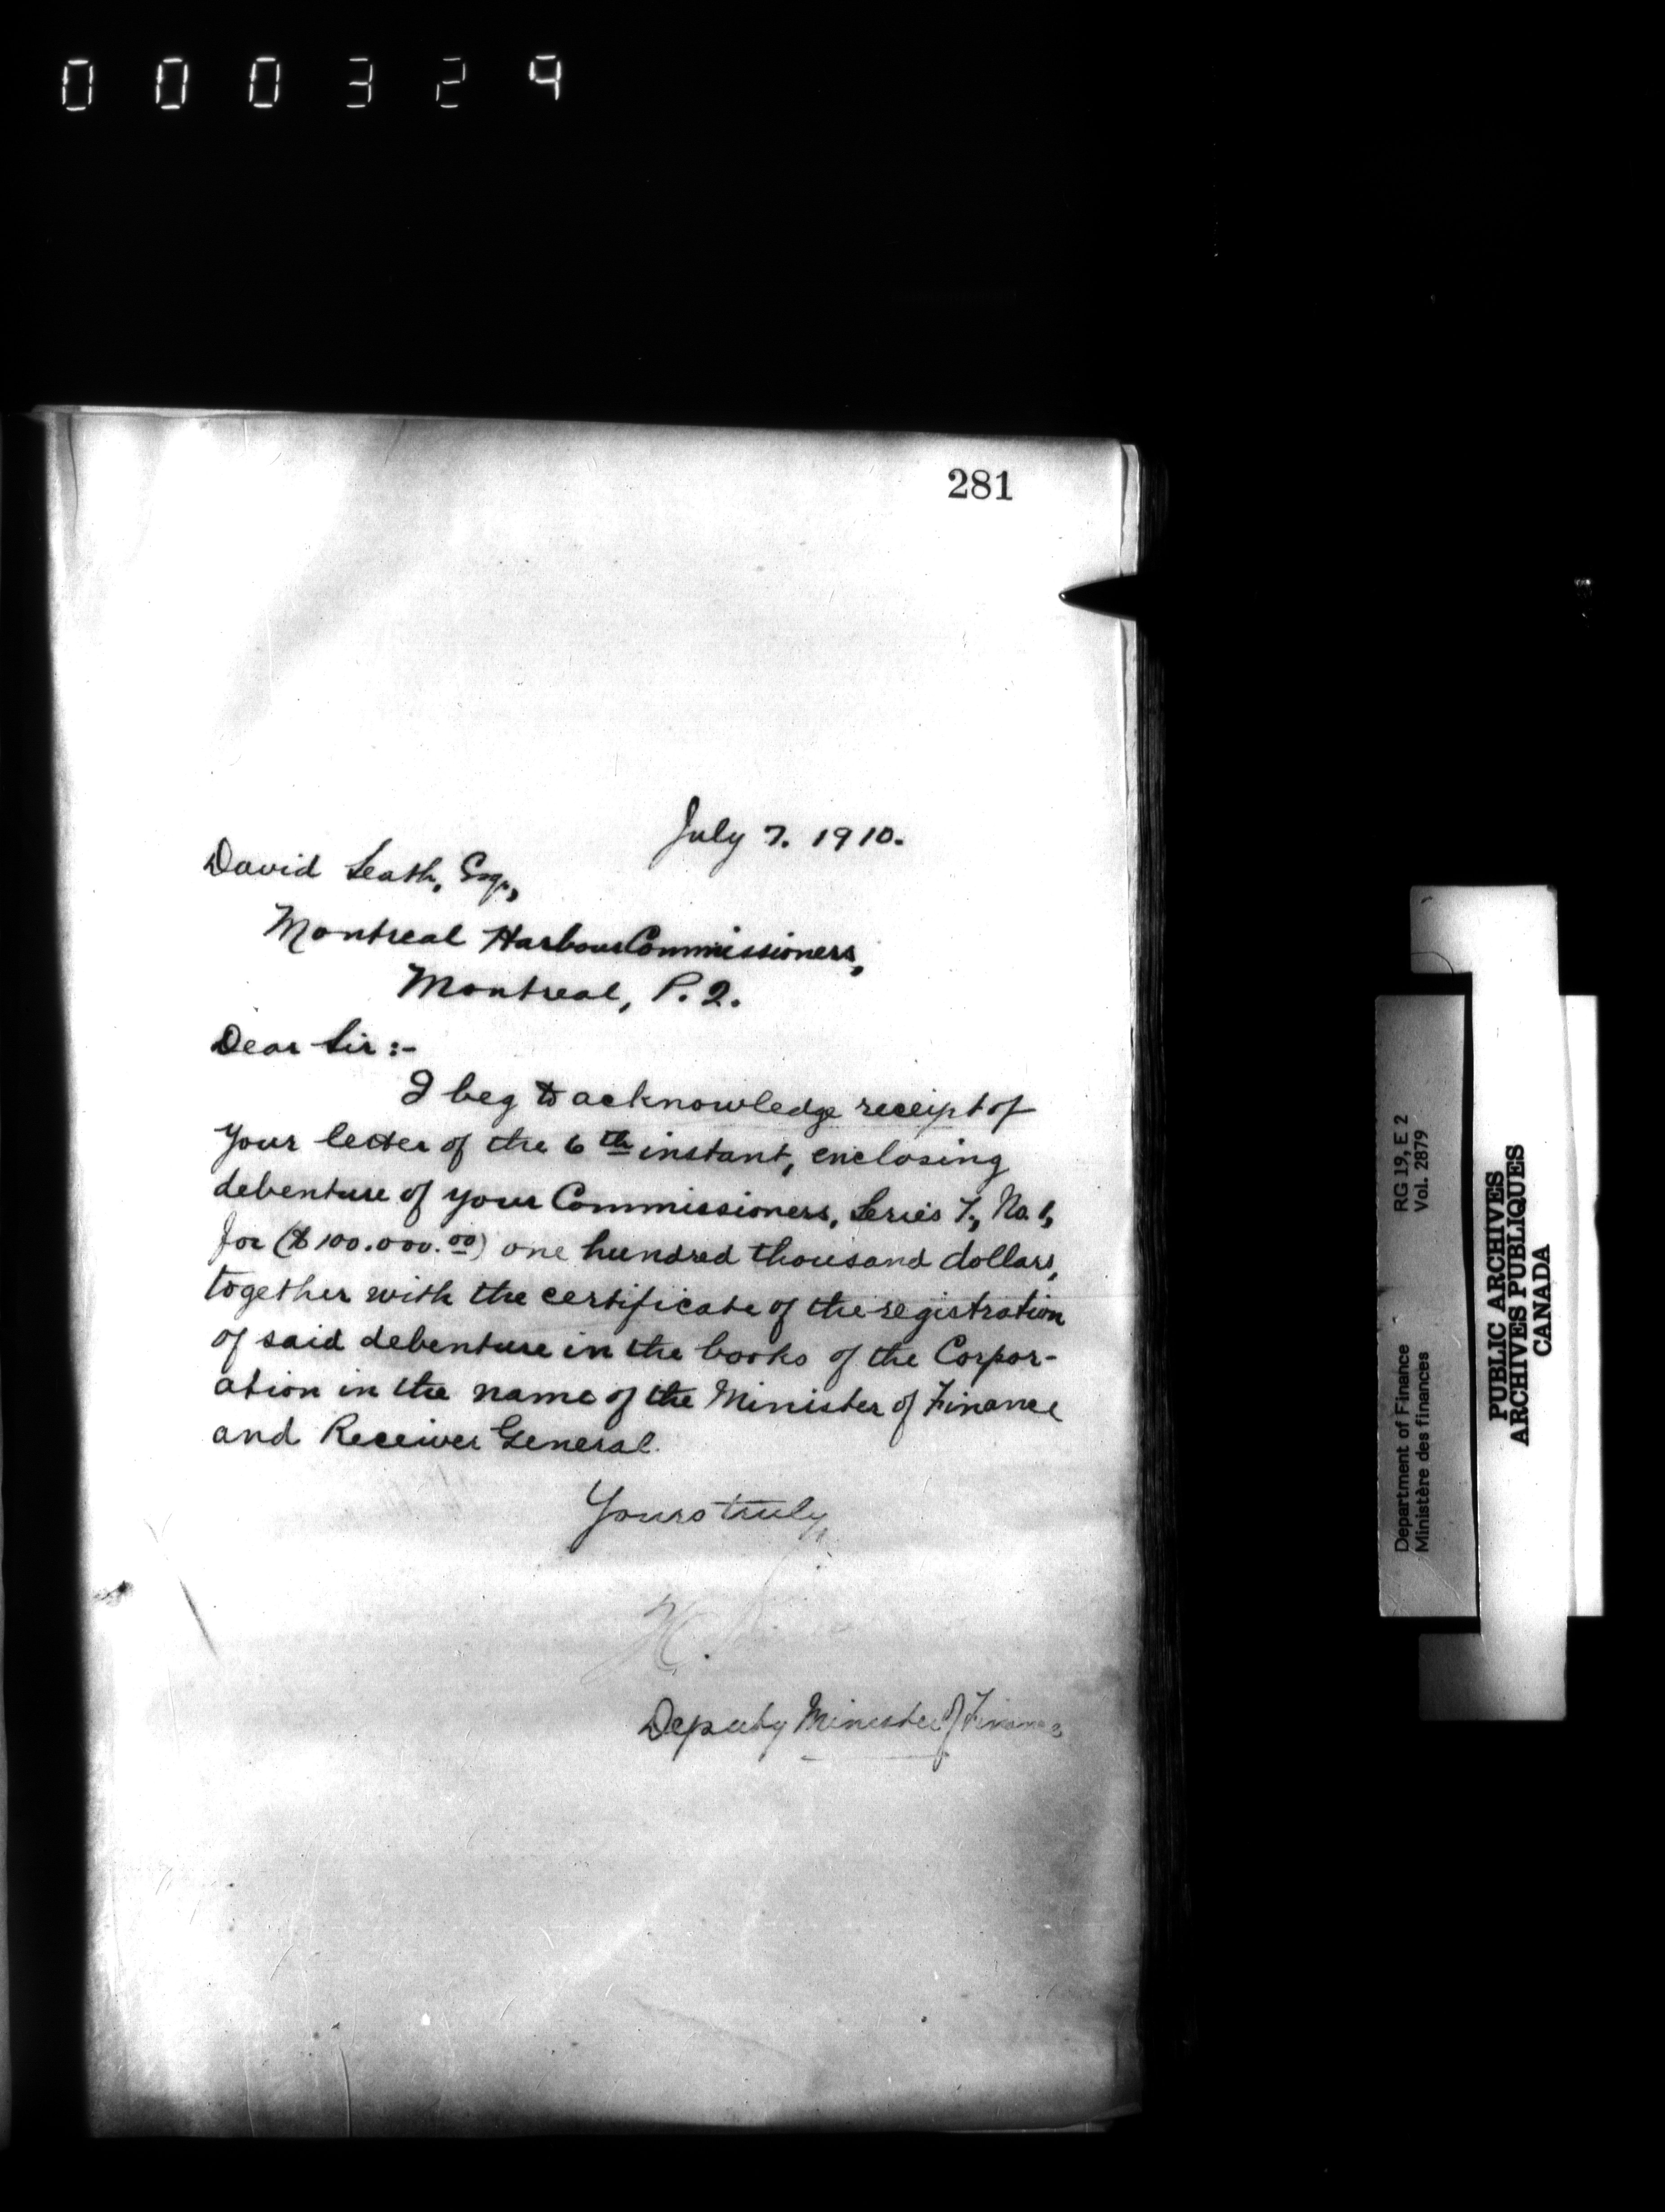 000324
281
July 7. 1910.
David Seath, Esq.,
Montreal Harbour Commissioners,
Montreal, P.Q.
Dear Sir :-
I beg to acknowledge receipt of
your letter of the 6th instant, enclosing
debenture of your Commissioners, Series F, No. 1,
for ($100.000.00) one hundred thousand dollars,
together with the certificate of the registration
of said debenture in the books of the Corpor-
ation in the name of the Minister of Finance
and Receiver General.
Yours truly,
Deputy Minister of Finance
Department of Finance RG 19, E 2
Ministère des finances Vol. 2879
PUBLIC ARCHIVES
ARCHIVES PUBLIQUES
CANADA